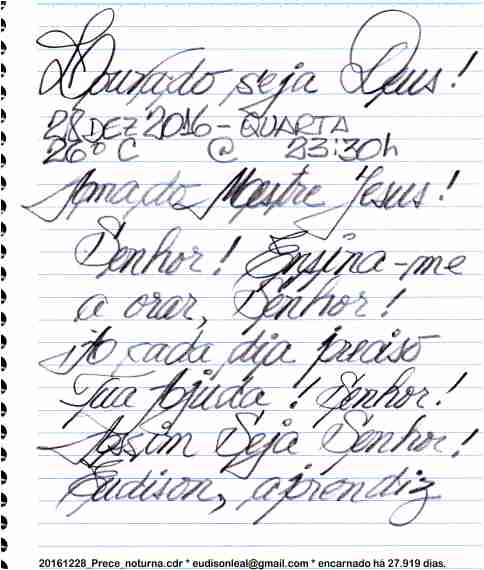 Lourado seja Deus!
28 DEZ 2016 - QUARTA
26° C @ 23:30h
Amado Mestre Jesus!
Senhor! Ensina-me
a orar, Senhor!
A cada dia preciso
Tua Ajuda! Senhor!
Assim Seja Senhor!
Eudison, aprendiz
20161228_Prece_noturna.cdr * eudisonleal@gmail.com * encarnado há 27.919 dias.